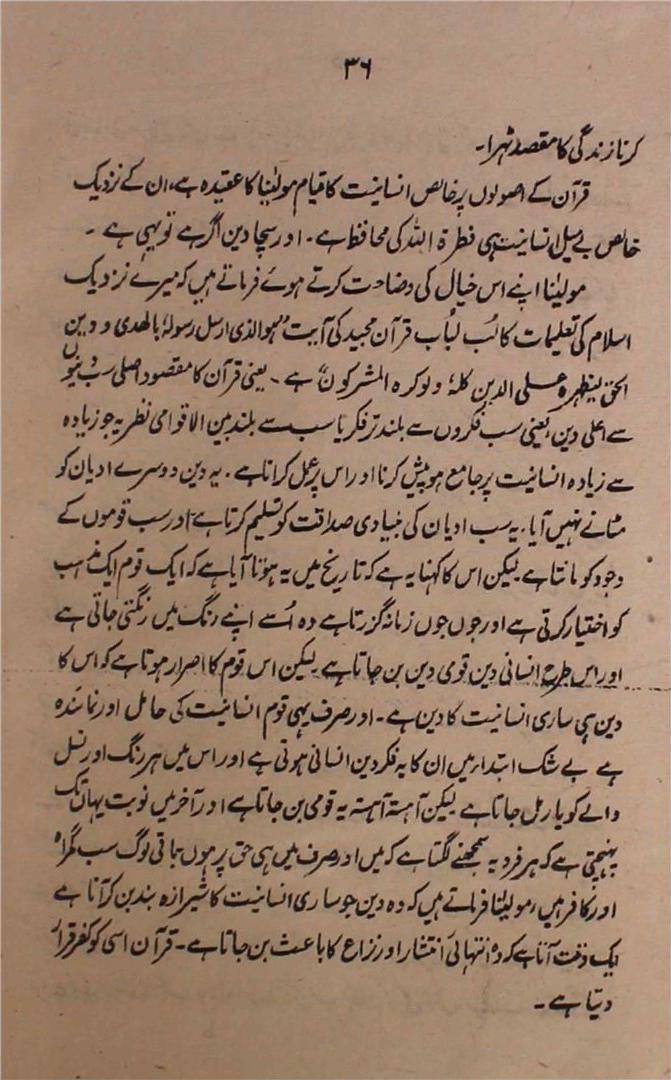 ۳۶
کرنا زندگی کا مقصد ٹھہرا۔
قرآن کے اصولوں پر خالص انسانیت کا قیام مولینا کا عقیدہ ہے، ان کے نزدیک
خالص بے میل انسانیت ہی فطرۃ اللہ کی محافظ ہے۔ اور سچا دین اگر ہے تو یہی ہے۔
مولینا اپنے اس خیال کی وضاحت کرتے ہوئے فرماتے ہیں کہ میرے نزدیک
اسلام کی تعلیمات کا لب لباب قرآن مجید کی آیت "ہوالذی ارسل رسولہ بالھدی و دین
الحق لیظہرہ علی الدین کلہ ولو کرہ المشرکون" ہے۔ یعنی قرآن کا مقصود اصلی سب دینوں
سے اعلی دین، یعنی سب فکروں سے بلند تر فکر یا سب سے بلند بین الاقوامی نظریہ جو زیادہ
سے زیادہ انسانیت پر جامع ہو پیش کرنا اور اس پر عمل کرانا ہے۔ یہ دین دوسرے ادیان کو
مٹانے نہیں آیا، یہ سب ادیان کی بنیادی صداقت کو تسلیم کرتا ہے اور سب قوموں کے
وجود کو مانتا ہے لیکن اس کا کہنا یہ ہے کہ تاریخ میں یہ ہوتا آیا ہے کہ ایک قوم ایک مذہب
کو اختیار کرتی ہے اور جوں جوں زمانہ گزرتا ہے وہ اسے اپنے رنگ میں رنگتی جاتی ہے
اور اس طرح انسانی دین قومی دین بن جاتا ہے لیکن اس قوم کا اصرار ہوتا ہے کہ اس کا
دین ہی ساری انسانیت کا دین ہے۔ اور صرف یہی قوم انسانیت کی حامل اور نمائندہ
ہے بے شک ابتدا میں ان کا یہ فکر دین انسانی ہوتی ہے اور اس میں ہر رنگ اور نسل
والے کو بار مل جاتا ہے لیکن آہستہ آہستہ یہ قومی بن جاتا ہے اور آخر میں نوبت یہاں تک
پہنچتی ہے کہ ہر فرد یہ سمجھنے لگتا ہے کہ میں اور صرف میں ہی حق پر ہوں باقی لوگ سب گمراہ
اور کافر ہیں، مولینا فرماتے ہیں کہ وہ دین جو ساری انسانیت کا شیرازہ بند بن کر آتا ہے
ایک وقت آتا ہے کہ وہ انتہائی انتشار اور نزاع کا باعث بن جاتا ہے۔ قرآن اسی کو کفر قرار
دیتا ہے۔